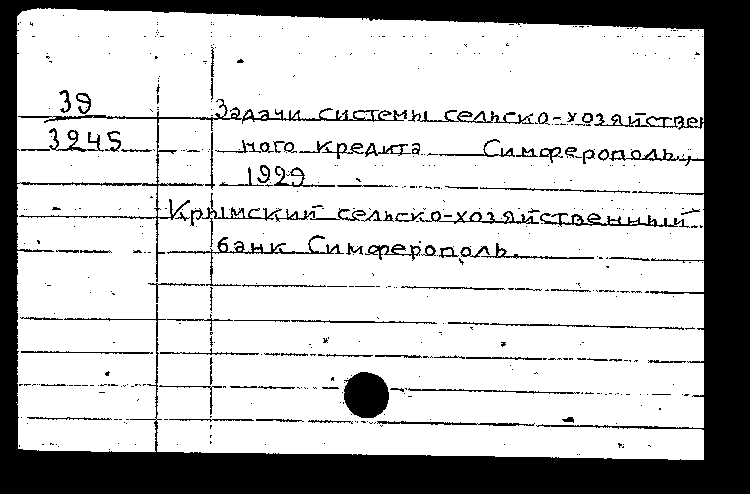 39
3245
Задачи системы сельско-хозяйствен
ного кредита Симферополь,
1929
Крымский сельско-хозяйственный
банк Симферополь.